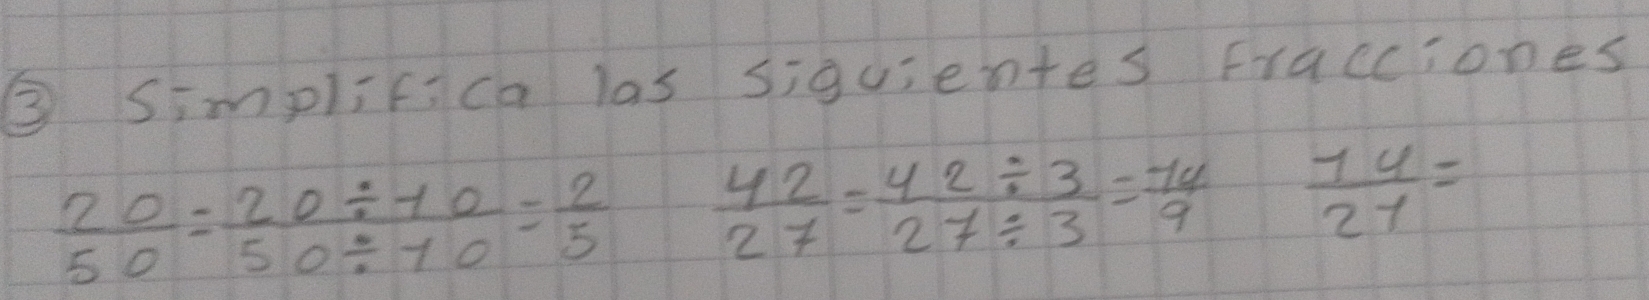 ③ Simplifica las siguientes fracciones
20/50 = 20÷10/50÷10 = 2/5 42/27 = 42÷3/27÷3 = 14/9 14/21 =